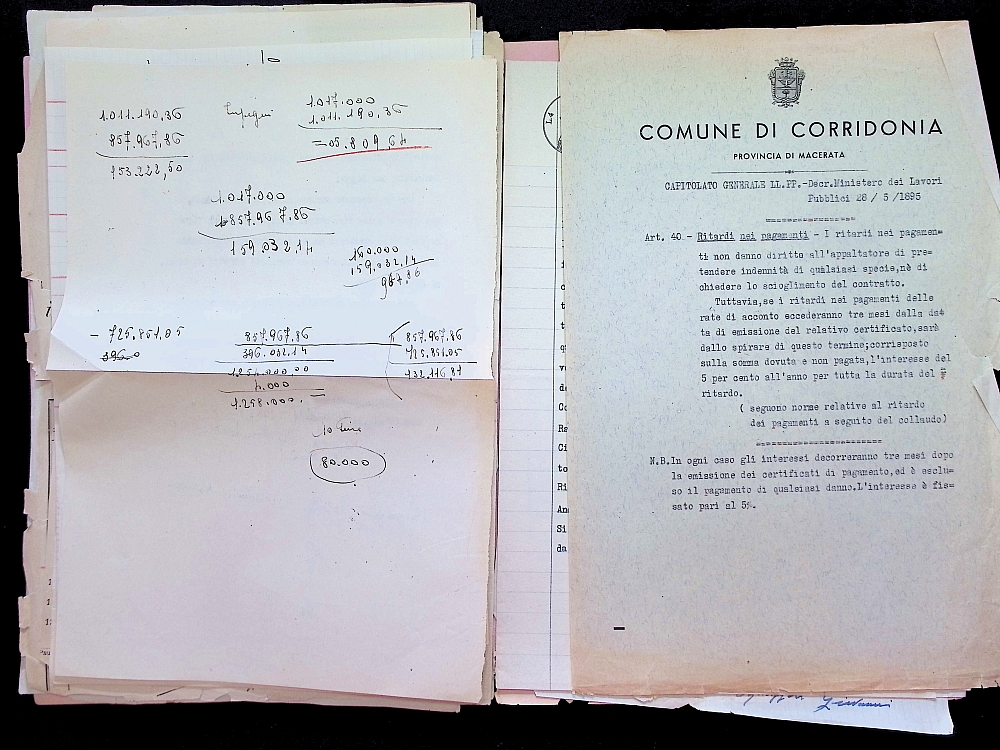 1.011.190,36
857.967,86
153.222,50
Impegni
1.017.000
1.011.190,36
=05.809,64
1.017.000
857.967,86
159.032,14
160.000
159.032,14
967,86
- 725.851,05
396.0
857.967,86
396.032,14
1.254.000,00
4.000
1.258.000. =
857.967,86
725.851,05
132.116,81
80.000
COMUNE DI CORRIDONIA
PROVINCIA DI MACERATA
CAPITOLATO GENERALE LL.PP.-Decr.Ministero dei Lavori
Pubblici 28 / 5 /1895
Art. 40 - Ritardi nei pagamenti - I ritardi nei pagamen=
ti non danno diritto all'appaltatore di pre=
tendere indennità di qualsiasi specie,nè di
chiedere lo scioglimento del contratto.
Tuttavia,se i ritardi nei pagamenti delle
rate di acconto eccederanno tre mesi dalla da=
ta di emissione del relativo certificato,sarà
dallo spirare di questo termine;corrisposto
sulla somma dovuta e non pagata,l'interesse del
5 per cento all'anno per tutta la durata del
ritardo.
( seguono norme relative al ritardo
dei pagamenti a seguito del collaudo)
N.B.In ogni caso gli interessi decorreranno tre mesi dopo
la emissione dei certificati di pagamento,ed è esclu=
so il pagamento di qualsiasi danno.L'interesse è fis=
sato pari al 5%.